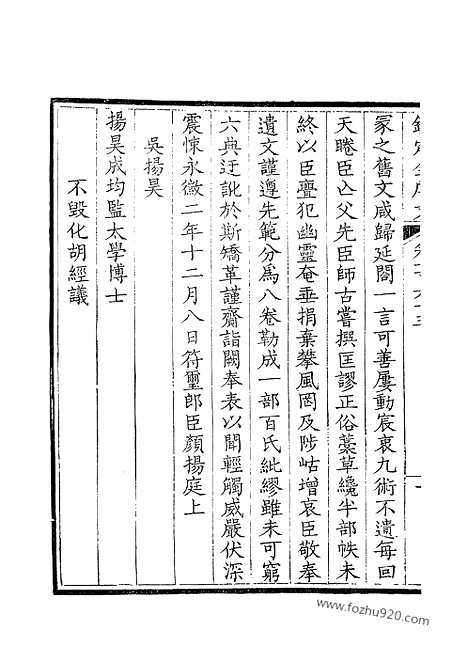 冢之舊文咸歸延閣一言可善屢動宸衷九術不遺每回
天睠臣亡父先臣師古嘗撰匡謬正俗藁草纔半部帙未
終以臣亹犯幽靈奄垂捐棄攀風罔及陟岵增哀臣敬奉
遺文謹遵先範分爲八卷勒成一部百氏紕繆雖未可窮
六典迂訛於斯矯革謹齋詣闕奉表以聞輕觸威嚴伏深
震悚永徽二年十二月八日符璽郎臣顏揚庭上
吳揚昊
揚昊成均監太學博士
不毀化胡經議
www.fozhu920.com